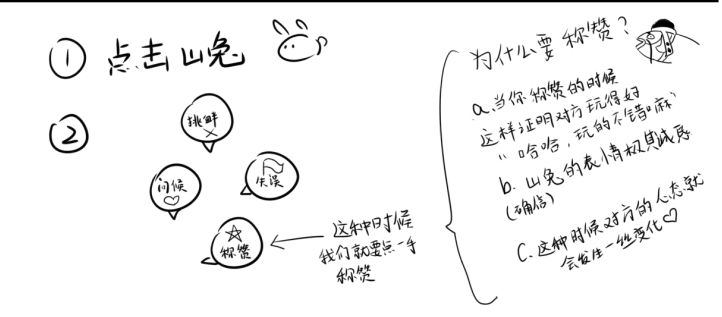 ① 点击山兔
②
挑衅
问候
失误
称赞
这种时候
我们就要点一手
称赞
为什么要称赞？
a.当你称赞的时候
这样证明对方玩得好
“哈哈，玩的不错嘛”
b. 山兔的表情极具威辱
(确信)
c.这种时候对方的心态就
会发生一丝变化♡